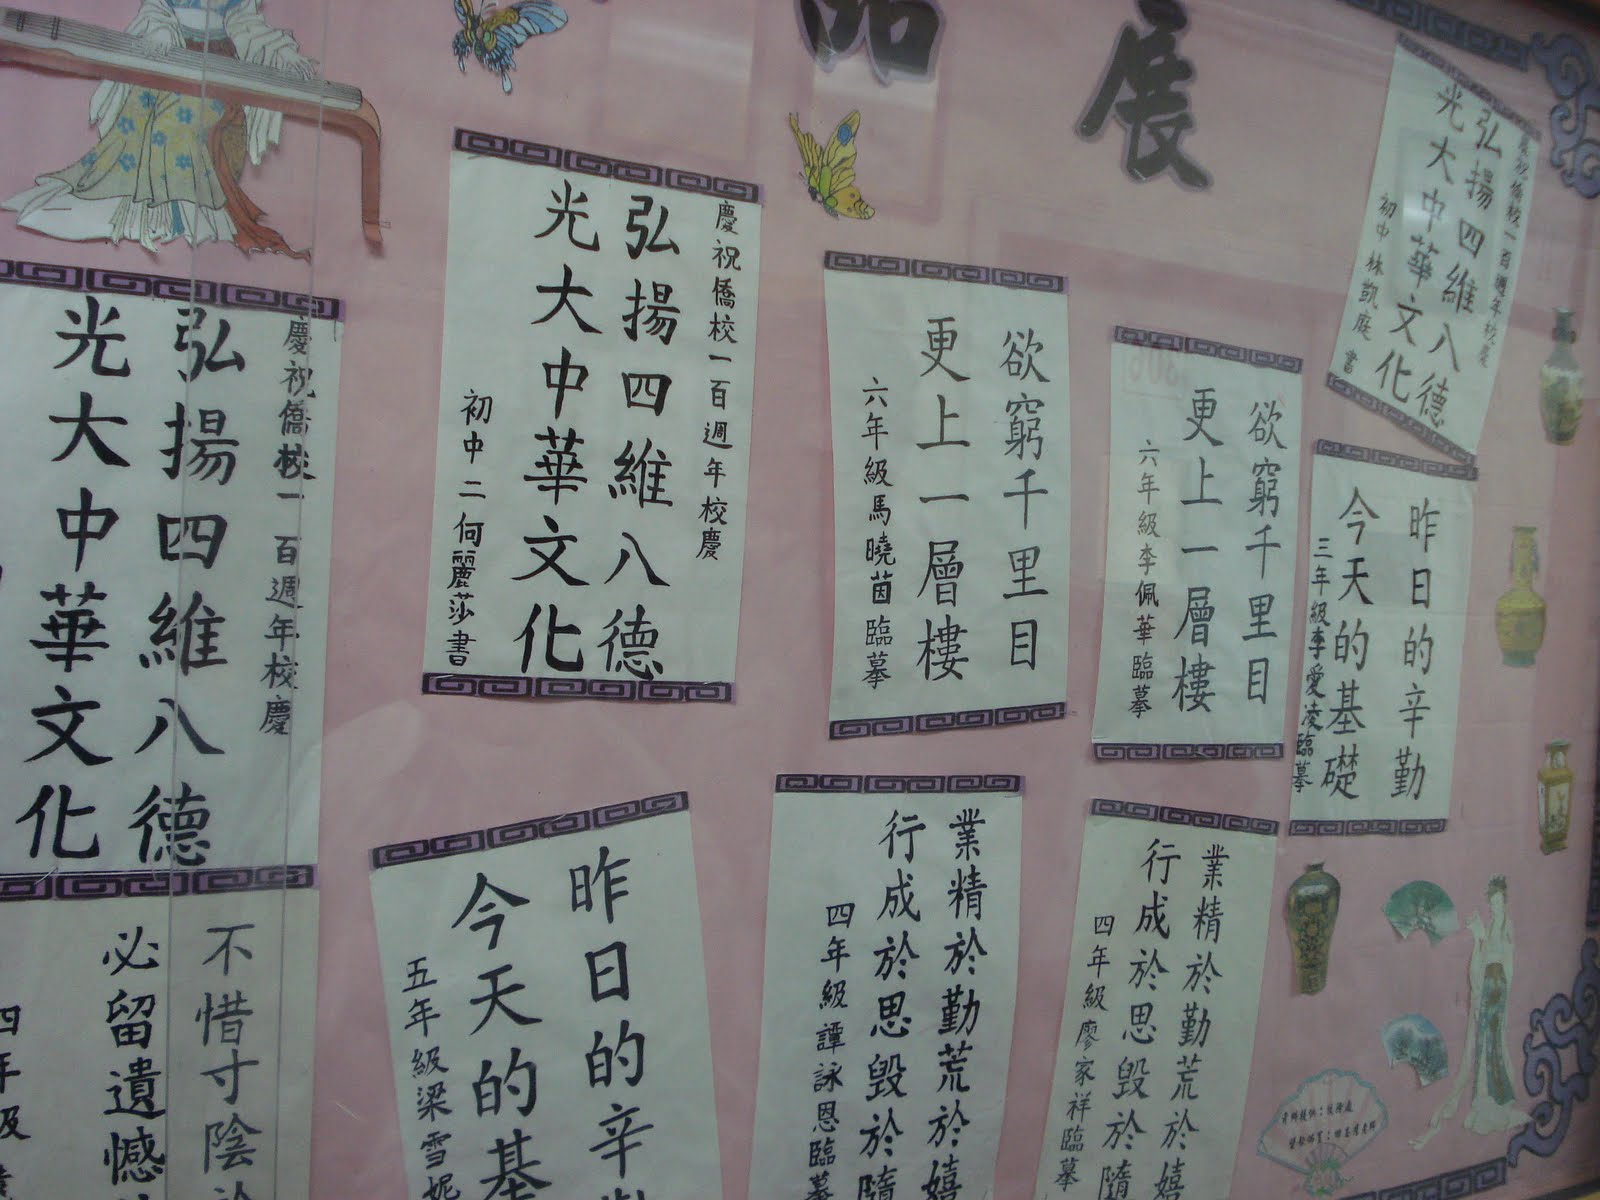 品展
慶祝僑校一百週年校慶
弘揚四維八德
光大中華文化
慶祝僑校一百週年校慶
弘揚四維八德
光大中華文化
初中二何麗莎書
欲窮千里目
更上一層樓
六年級馬曉茵臨摹
欲窮千里目
更上一層樓
六年級李佩華臨摹
慶祝僑校一百週年校慶
弘揚四維八德
光大中華文化
初中林凱庭書
昨日的辛勤
今天的基礎
三年級李愛凌臨摹
不惜寸陰於
必留遺憾
四年級
昨日的辛勤
今天的基
五年級梁雪妮
業精於勤荒於嬉
行成於思毀於隨
四年級譚詠恩臨摹
業精於勤荒於嬉
行成於思毀於隨
四年級廖家祥臨摹